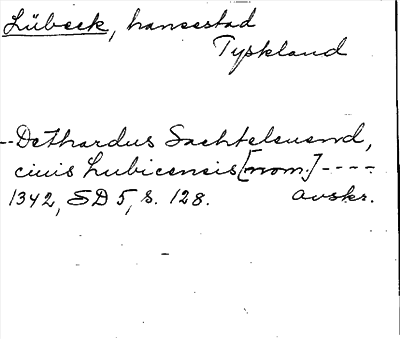 Lübeck, hansestad
Tyskland
--Dethardus Sachtelevend,
ciuis Lubicensis [nom.] ----
1342, SD 5, s. 128. avskr.